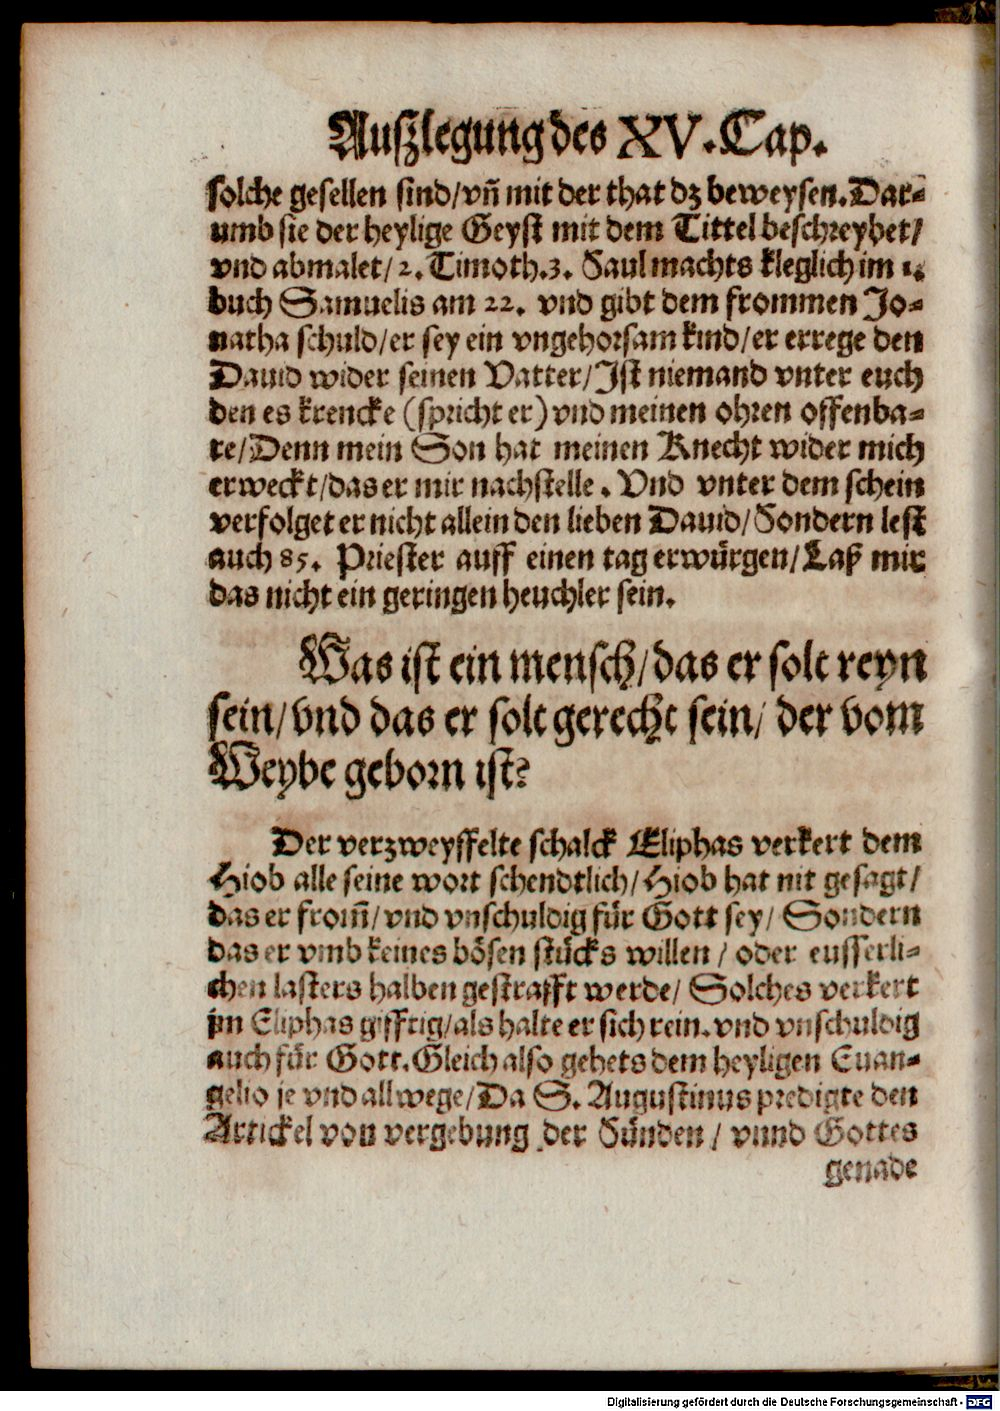 Auſzlegung des XV. Cap.
ſolche geſellen ſind/vñ mit der that dz beweyſen. Dar-
umb ſie der heylige Geyſt mit dem Tittel beſchreybet/
vnd abmalet/2. Timoth.3. Saul machts kleglich im 1.
buch Samuelis am 22. vnd gibt dem frommen Jo-
natha ſchuld/er ſey ein vngehorſam kind/er errege den
Dauid wider ſeinen Vatter/Iſt niemand vnter euch
den es krencke (ſpricht er) vnd meinen ohren offenba-
re/Denn mein Son hat meinen Knecht wider mich
erweckt/das er mir nachſtelle. Vnd vnter dem ſchein
verfolget er nicht allein den lieben Dauid/Sondern leſt
auch 85. Prieſter auff einen tag erwürgen/Laß mir
das nicht ein geringen heuchler ſein.
Was iſt ein menſch/das er ſolt reyn
ſein/vnd das er ſolt gerecht ſein/ der vom
Weybe geborn iſt?
Der verzweyffelte ſchalck Eliphas verkert dem
Hiob alle ſeine wort ſchendtlich/Hiob hat nit geſagt/
das er from̃/vnd vnſchuldig für Gott ſey/ Sondern
das er vmb keines böſen ſtücks willen / oder euſſerli-
chen laſters halben geſtrafft werde/ Solches verkert
jm Eliphas gifftig/als halte er ſich rein. vnd vnſchuldig
auch für Gott. Gleich alſo gehets dem heyligen Euan-
gelio je vnd allwege/Da S. Auguſtinus predigte den
Artickel von vergebung der Sünden / vnnd Gottes
genade
Digitalisierung gefördert durch die Deutsche Forschungsgemeinschaft - DFG